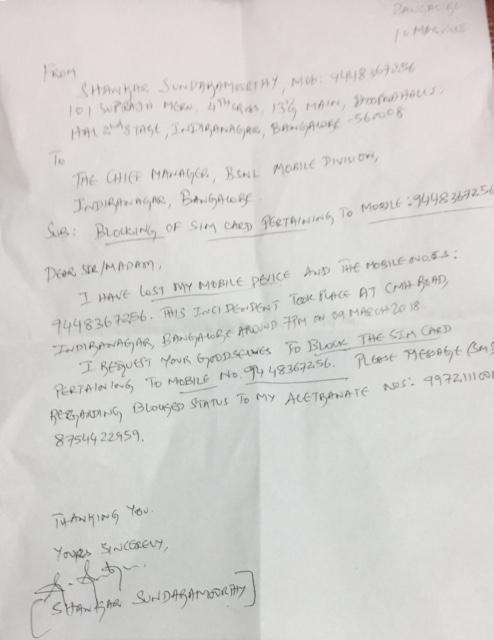 BANGALORE
10 MAR
FROM
SHANKAR SUNDARAMOORTHY, MOB: 9448367256
101 SUPRAJA MERN, 4TH CROSS, 13TH MAIN,
HAL 2nd STAGE, INDIRANAGAR, BANGALORE -560008
TO
THE CHIEF MANAGER, BSNL MOBILE DIVISION,
INDIRANAGAR, BANGALORE
SUB: BLOCKING OF SIM CARD PERTAINING TO MOBILE: 9448367256
DEAR SIR/MADAM,
I HAVE LOST MY MOBILE DEVICE AND THE MOBILE NO IS:
9448367256. THIS INCIDENDENT TOOK PLACE AT CMH ROAD,
INDIRANAGAR, BANGALORE AROUND 7PM ON 09 MARCH 2018
I REQUEST YOUR GOODSELVES TO BLOCK THE SIM CARD
PERTAINING TO MOBILE NO. 9448367256. PLEASE MESSAGE (SMS
REGARDING BLOCKED STATUS TO MY ALETRANATE NOS:
8754422959.
THANKING YOU.
YOURS SINCERELY,
[SHANKAR SUNDARAMOORTHY]